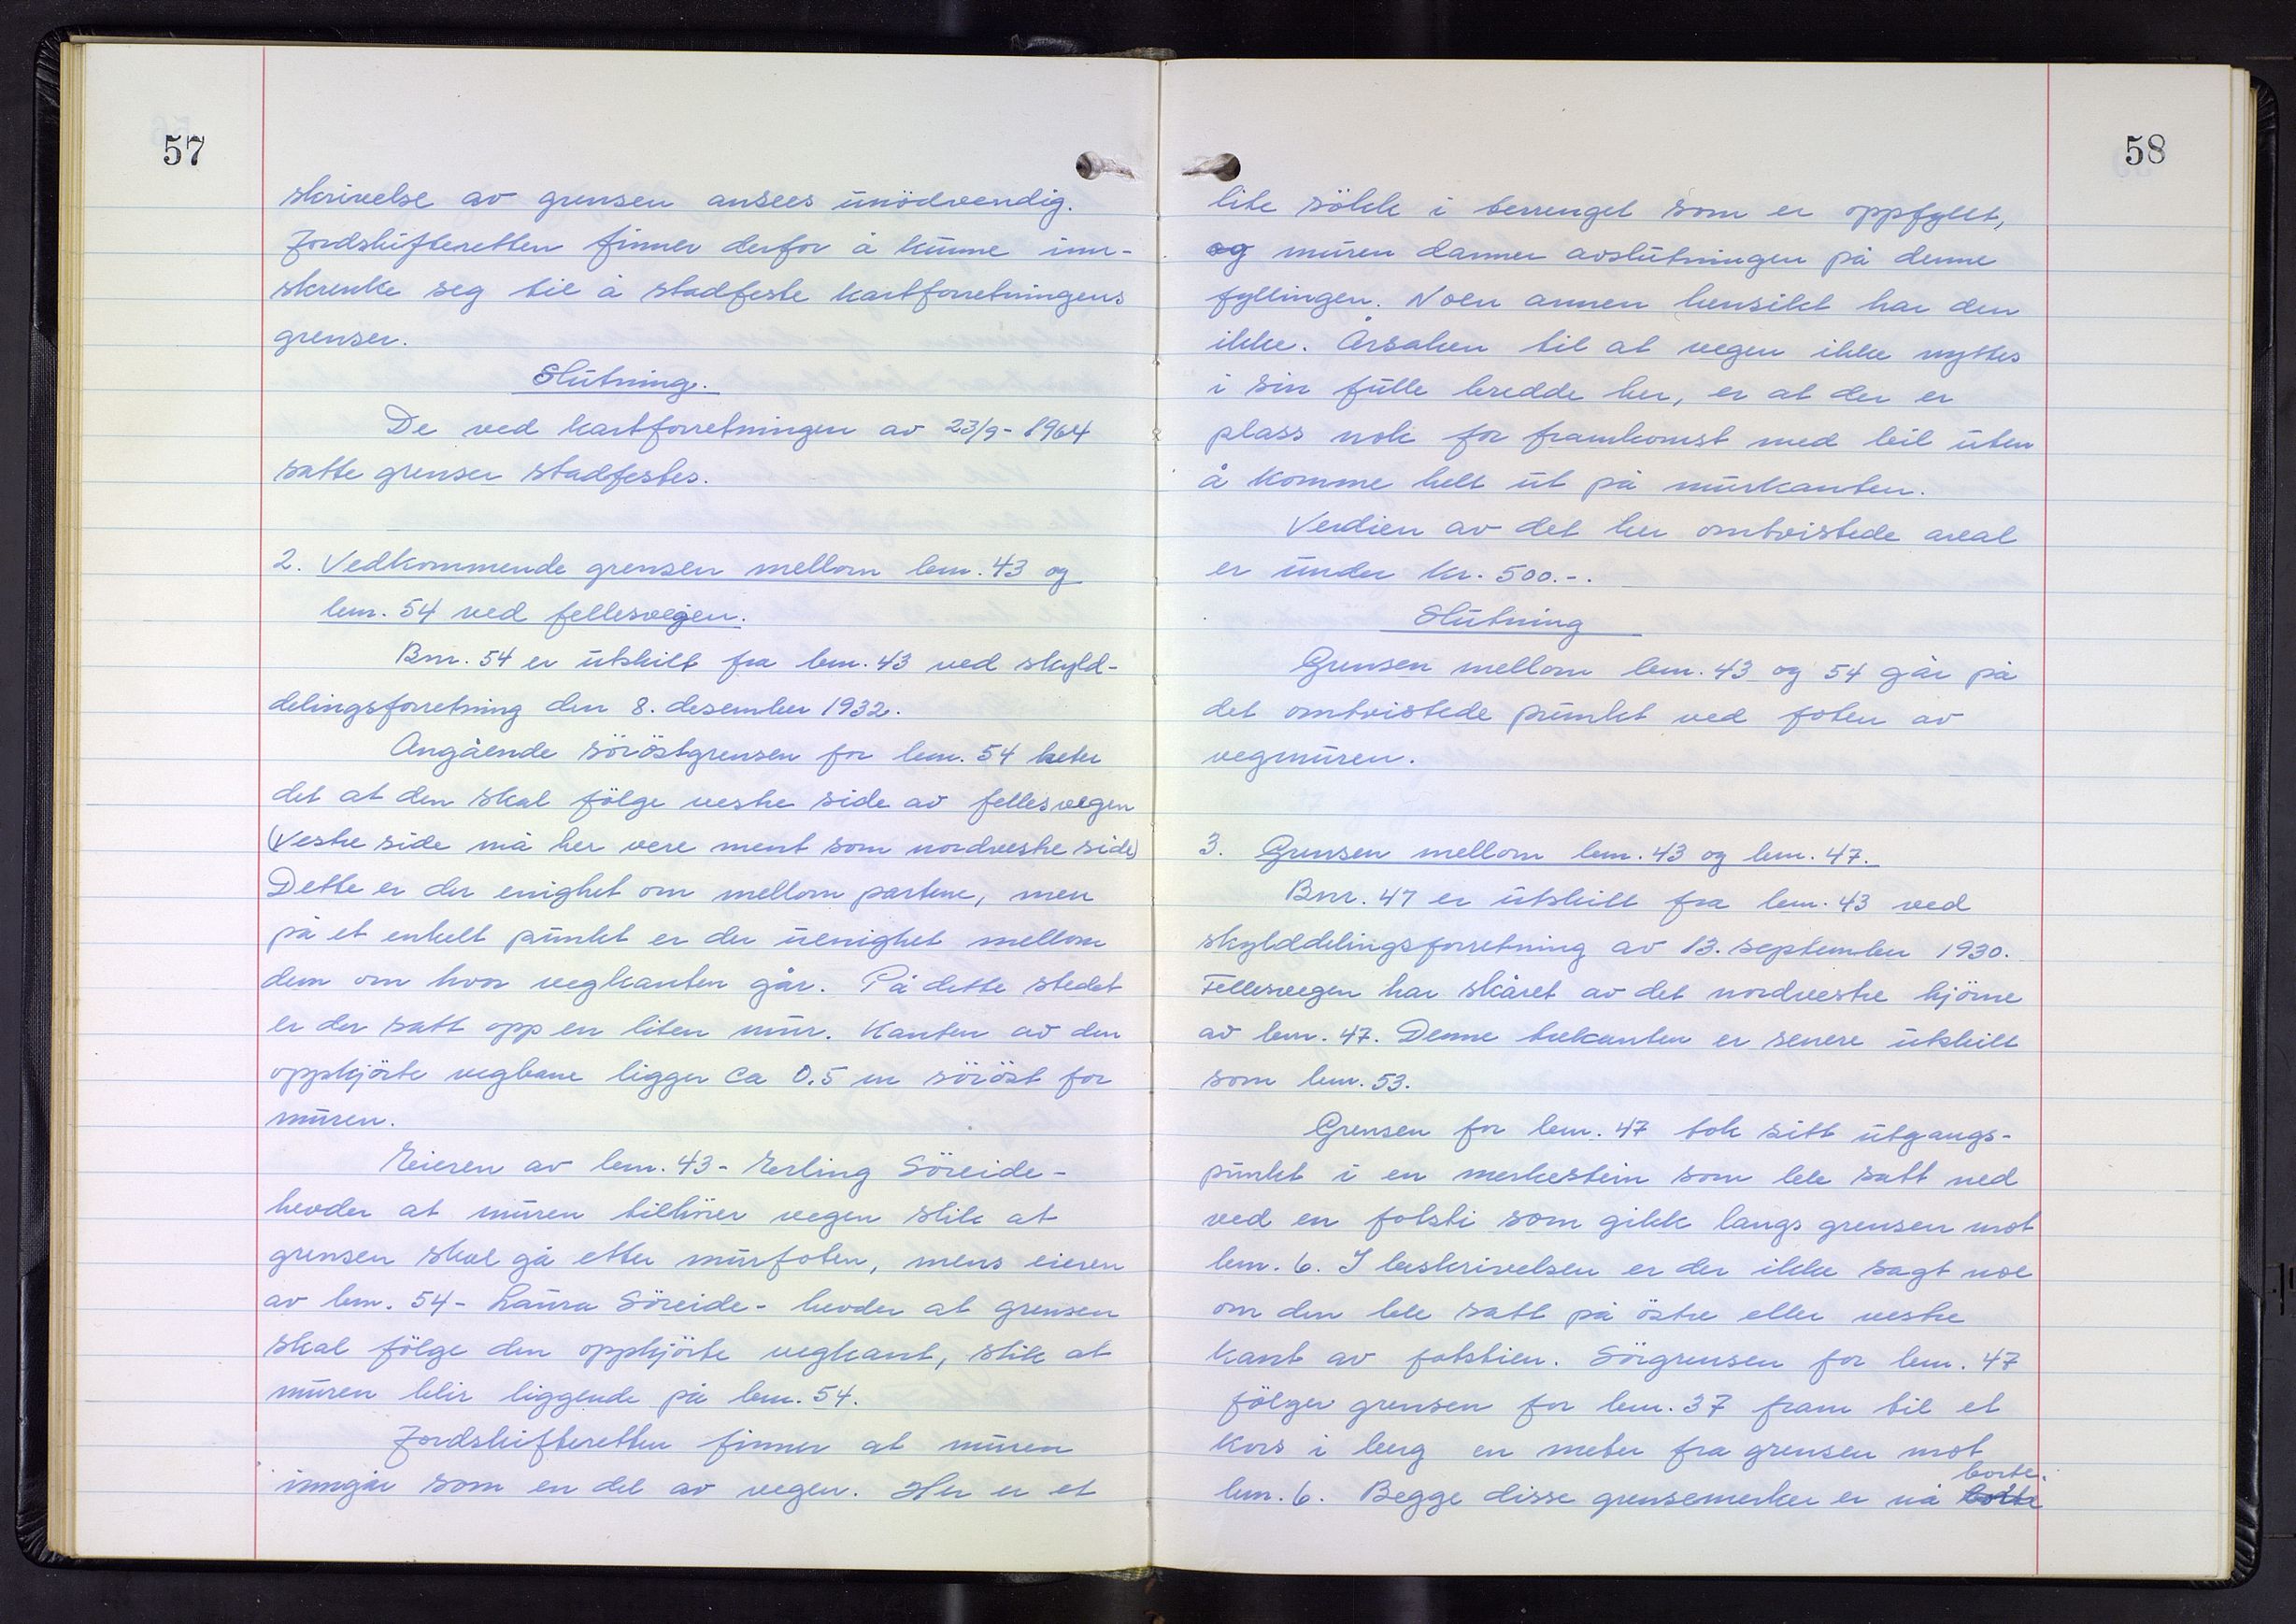 57
skrivelse av grensen ansees unödvendig.
Jordskifteretten finner derfor å kunne inn-
skrenke seg til å stadfeste kartforretningens
grenser.
Slutning.
De ved kartforretningen av 23/9-1964
satte grenser stadfestes.
2. Vedkommende grensen mellom bnr. 43 og
bnr. 54 ved fellesvegen.
Bnr. 54 er utskilt fra bnr. 43 ved skyld-
delingsforretning den 8. desember 1932.
Angående söröstgrensen for bnr. 54 heter
det at den skal fölge vestre side av fellesvegen
(Vestre side må her vere ment som nordvestre side)
Dette er der enighet om mellom partene, men
på et enkelt punkt er der uenighet mellom
dem om hvor vegkanten går. På dette stedet
er der satt opp en liten mur. Kanten av den
oppkjörte vegbane ligger ca 0.5 m söröst for
muren.
Eieren av bnr. 43 - Erling Söreide -
hevder at muren tilhörer vegen slik at
grensen skal gå etter murfoten, mens eieren
av bnr. 54 - Laura Söreide - hevder at grensen
skal fölge den oppkjörte vegkant, slik at
muren blir liggende på bnr. 54.
Jordskifteretten finner at muren
inngår som en del av vegen. Her er et
58
lite sökk i terrenget som er oppfyllt,
og muren danner avslutningen på denne
fyllingen. Noen annen hensikt har den
ikke. Årsaken til at vegen ikke nyttes
i sin fulle bredde her, er at der er
plass nok for framkomst med bil uten
å komme helt ut på murkanten.
Verdien av det her omtvistede areal
er under kr. 500.-.
Slutning
Grensen mellom bnr. 43 og 54 går på
det omtvistede punkt ved foten av
vegmuren.
3. Grensen mellom bnr. 43 og bnr. 47.
Bnr. 47 er utskilt fra bnr. 43 ved
skylddelingsforretning av 13. september 1930.
Fellesvegen har skåret av det nordvestre hjörne
av bnr. 47. Denne trekanten er senere utskilt
som bnr. 53.
Grensen for bnr. 47 tok sitt utgangs-
punkt i en merkestein som ble satt ned
ved en fotsti som gikk langs grensen mot
bnr. 6. I beskrivelsen er der ikke sagt noe
om den ble satt på östre eller vestre
kant av fotstien. Sörgrensen for bnr. 47
fölger grensen for bnr. 37 fram til et
kors i berg en meter fra grensen mot
borte.
bnr. 6. Begge disse grensemerker er nå borte